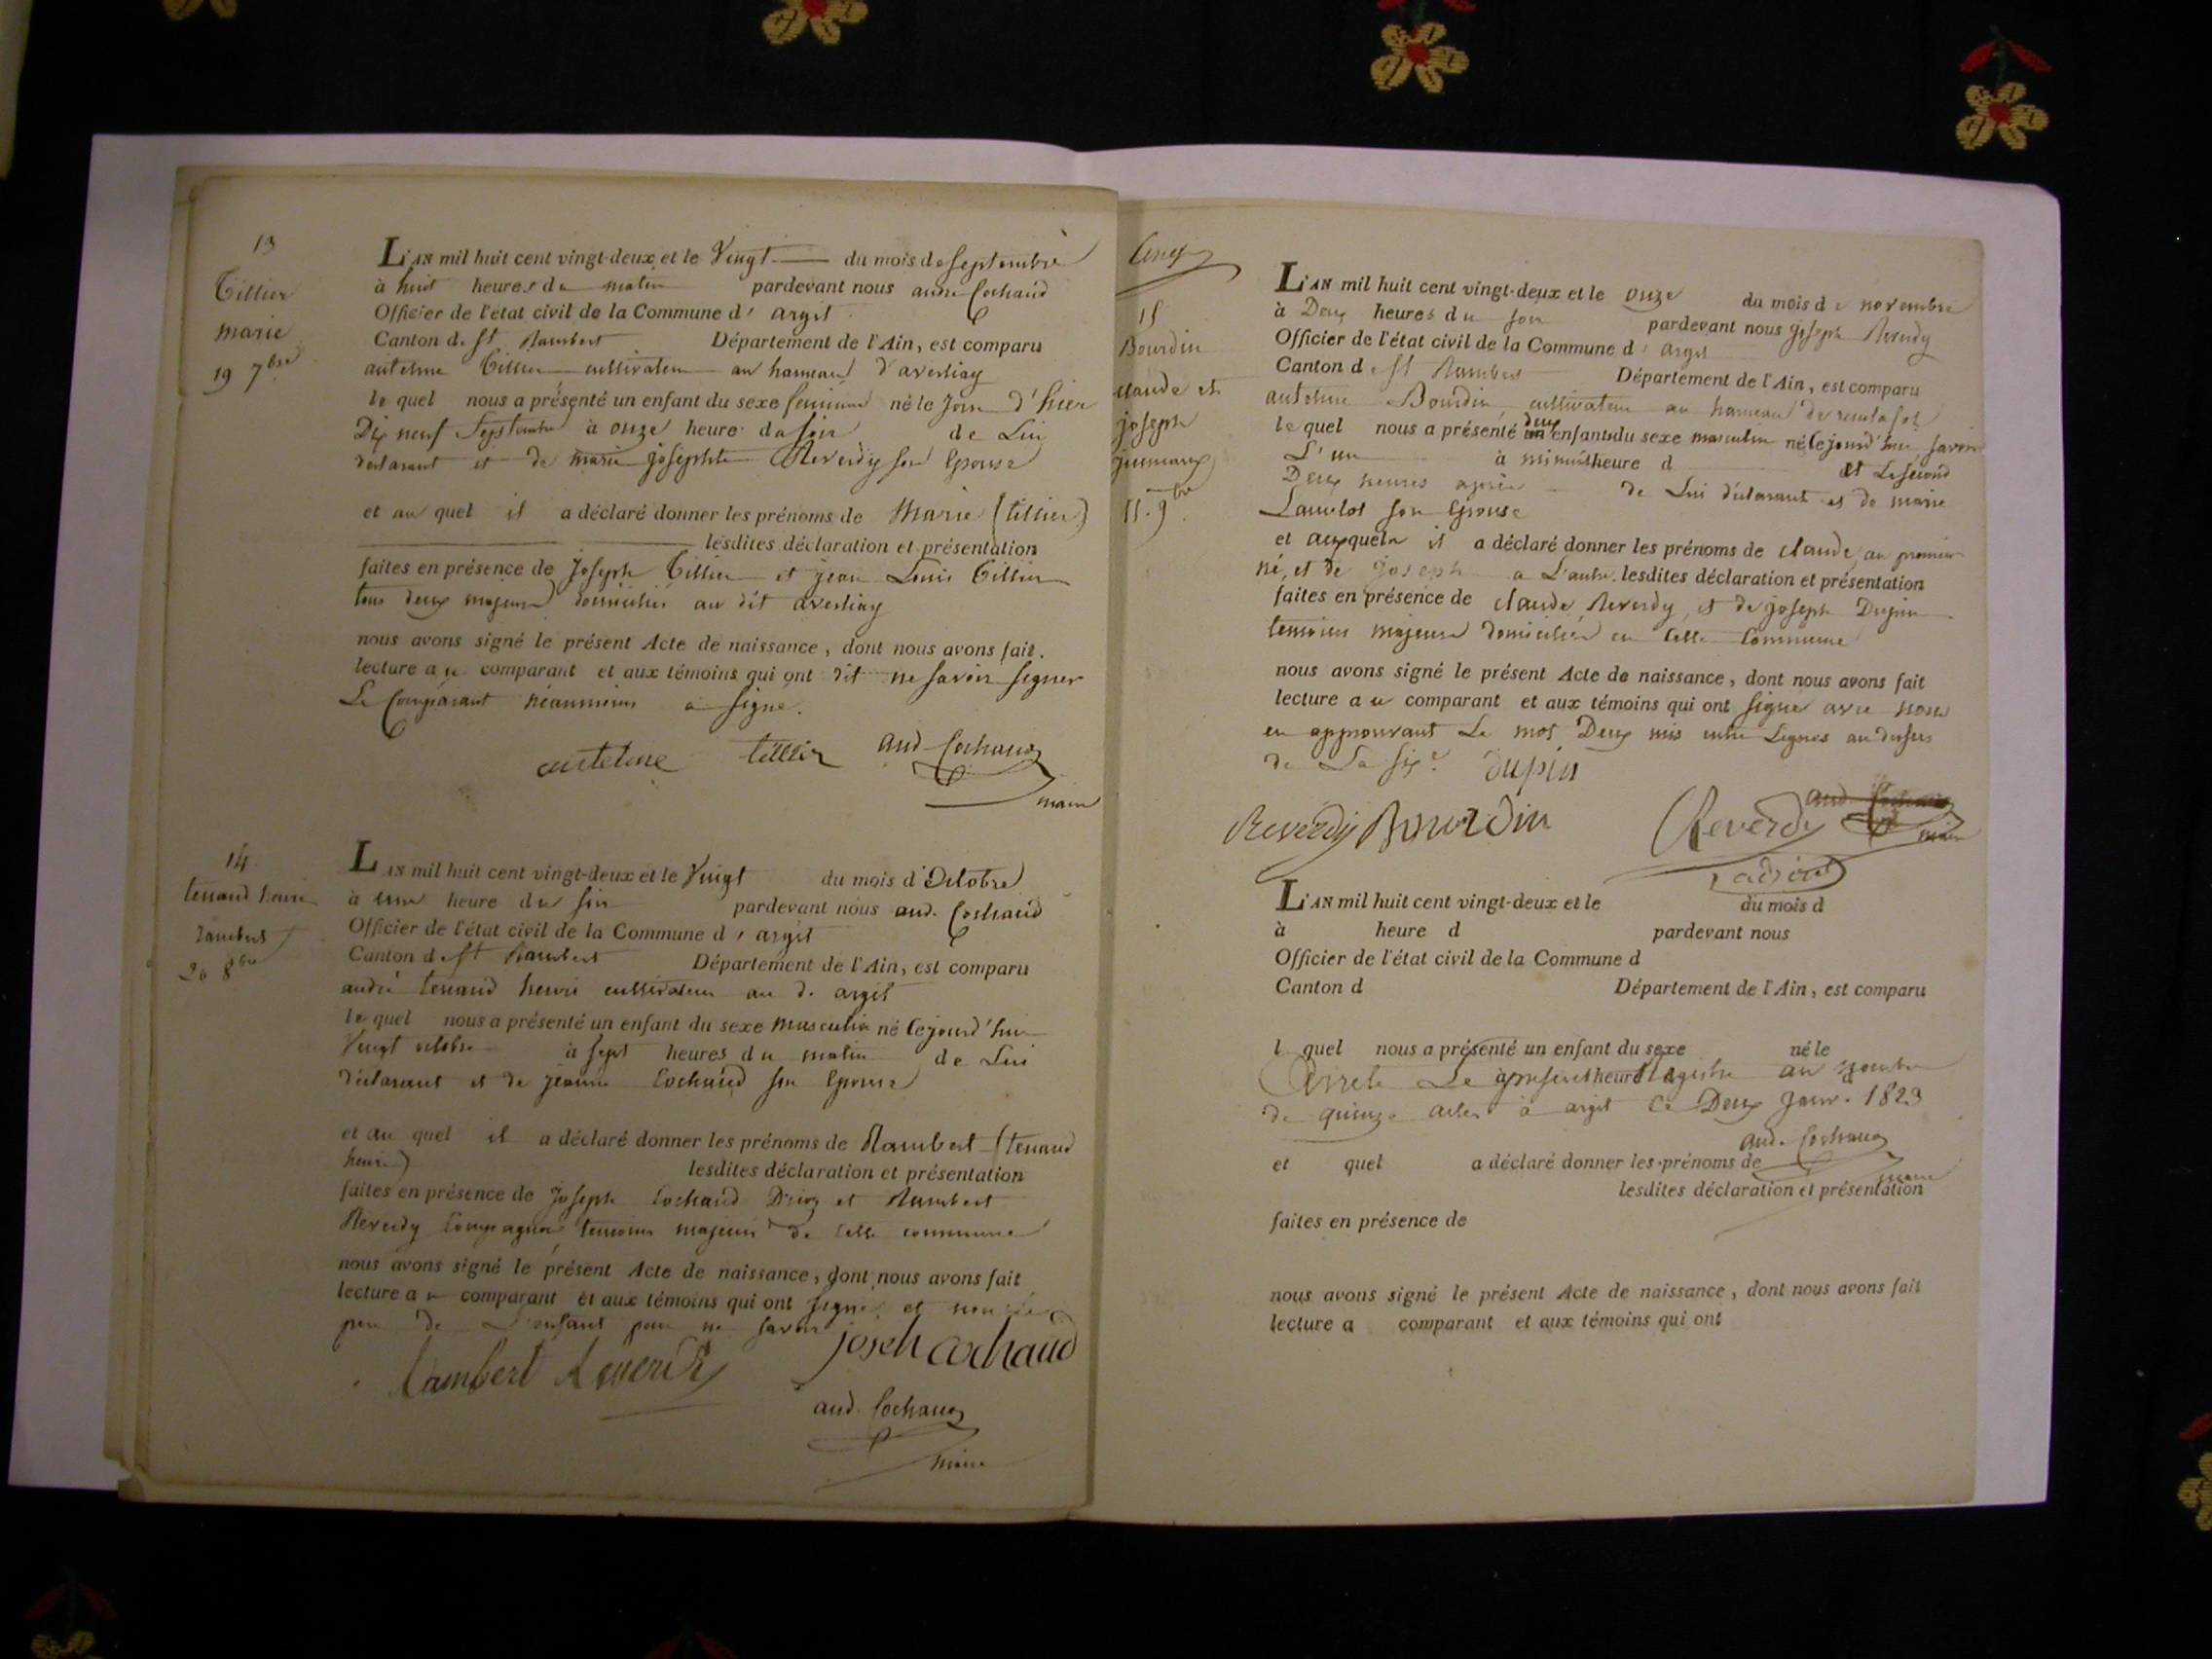 13
Tillier
marie
19 7bre
L'AN mil huit cent vingt-deux et le Vingt du mois de septembre
à huit heures du matin pardevant nous andré Cochaud
Officier de l'état civil de la Commune d' argit
Canton de St Rambert Département de l'Ain, est comparu
antelme Tillier cultivateur au hameau d'averliay
le quel nous a présenté un enfant du sexe feminin né le Jour d'hier
Dix neuf Septembre à onze heure du soir de Lui
déclarant et de marie josephte Reverdy son Epouse
et au quel il a déclaré donner les prénoms de Marie (tillier)
lesdites déclaration et présentation
faites en présence de Joseph Tillier et jean Louis Tillier
tous deux majeurs domiciliés au dit averliay
nous avons signé le présent Acte de naissance, dont nous avons fait
lecture au comparant et aux témoins qui ont dit ne savoir signer
Le Comparant néanmoins a signé.
antelme tillier aud Cochaud
maire
14
tenand henri
rambert
20 8bre
L'AN mil huit cent vingt-deux et le Vingt du mois d'Octobre
à une heure du soir pardevant nous and. Cochaud
Officier de l'état civil de la Commune d' argit
Canton de St Rambert Département de l'Ain, est comparu
andré tenand henri cultivateur au d. argit
le quel nous a présenté un enfant du sexe masculin né Cejourd'hui
Vingt octobre à sept heures du matin de Lui
déclarant et de jeanne Cochaud son Epouse
et au quel il a déclaré donner les prénoms de Rambert (tenand
henri) lesdites déclaration et présentation
faites en présence de Joseph Cochaud et Rambert
Reverdy Compagnon temoins majeurs de cette commune
nous avons signé le présent Acte de naissance, dont nous avons fait
lecture au comparant et aux témoins qui ont signé et non le
pere de L'enfant pour ne savoir
Rambert Reverdy joseh cochaud
aud. Cochaud
maire
15
Bourdin
claude et
joseph
jumeaux
11. 9bre
L'AN mil huit cent vingt-deux et le onze du mois de novembre
à Deux heures du soir pardevant nous joseph Reverdy
Officier de l'état civil de la Commune d' argit
Canton de St Rambert Département de l'Ain, est comparu
antelme Bourdin cultivateur au hameau de reculafol
le quel nous a présenté un deux enfants du sexe masculin né Cejourd'hui savoir
L'un à minuit heure d et Le second
Deux heures après de Lui déclarant et de marie
Lancelot son Epouse
et auxquels il a déclaré donner les prénoms de claude au premier
né, et de joseph a L'autre. lesdites déclaration et présentation
faites en présence de claude Reverdy, et de joseph Dupin
temoins majeurs domiciliés en cette Commune
nous avons signé le présent Acte de naissance, dont nous avons fait
lecture au comparant et aux témoins qui ont signé avec nous
en approuvant Le mot Deux mis entre Lignes au dessus
de La sixe dupin
Reverdy Bourdin Reverdy aud Cochaud
maire
adjoint
L'AN mil huit cent vingt-deux et le du mois d
à heure d pardevant nous
Officier de l'état civil de la Commune d
Canton d Département de l'Ain, est comparu
l quel nous a présenté un enfant du sexe né le
à heure d
Arreté Le present Registre au nombre
de quinze actes à argit Ce Deux Janv. 1823
aud. Cochaud
maire
et quel a déclaré donner les prénoms de
lesdites déclaration et présentation
faites en présence de
nous avons signé le présent Acte de naissance, dont nous avons fait
lecture a comparant et aux témoins qui ont